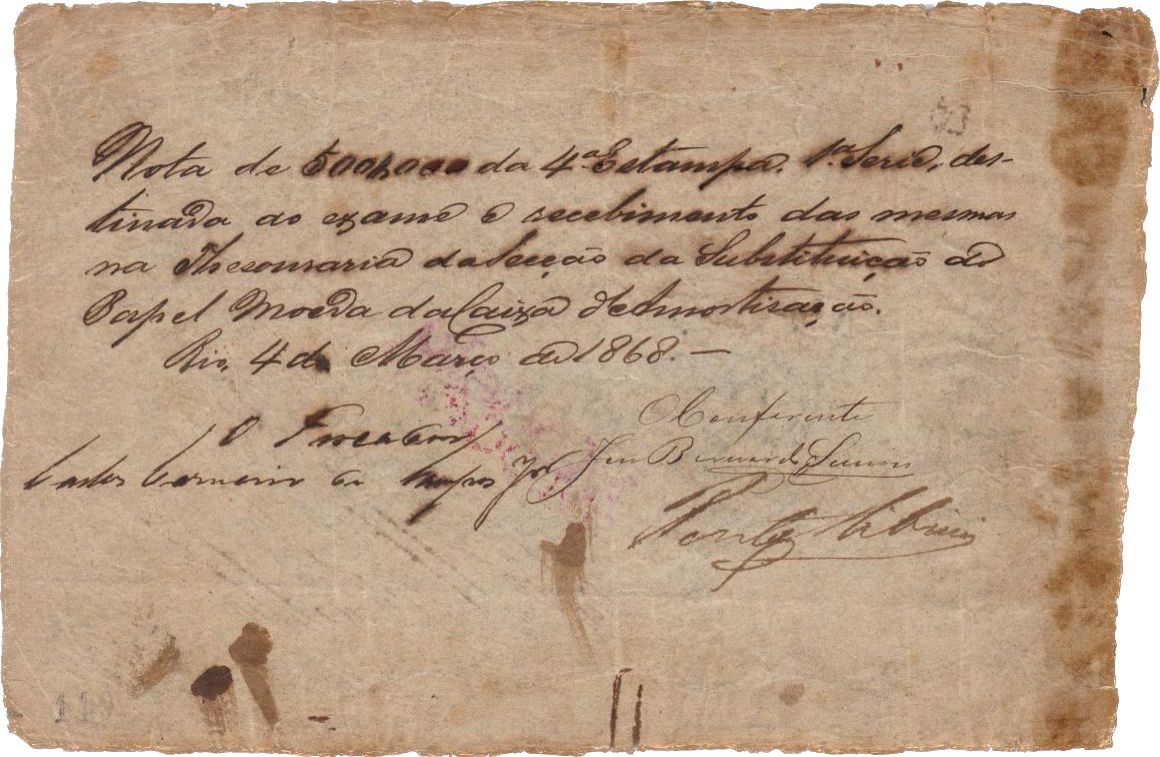 Nota de 500$000 da 4ª Estampa. 1ª Serie, des-
tinada ao exame e recebimento das mesmas
na Thesouraria da Secção da Substituição do
Papel Moeda da Caixa de Amortização.
Rio, 4 de Março de 1868. —
O Conferente
O
Carlos Carneiro de Campos
119